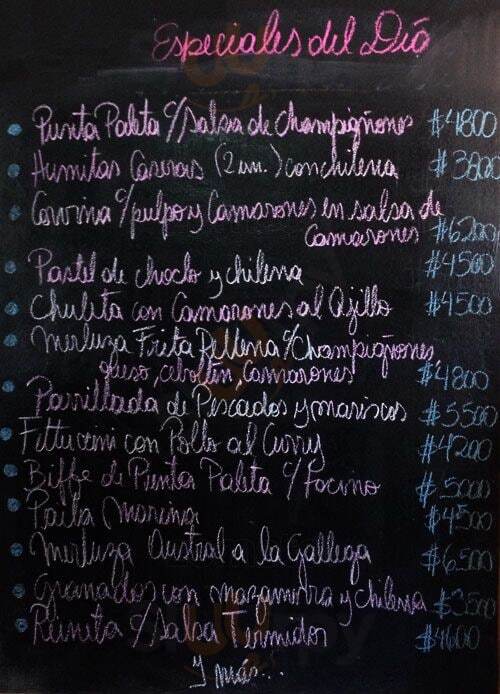 Especiales del Día
Punta Paleta c/salsa de Champigñones $4800
Humitas Caseras (2un.) con chilena $3800
Corvina c/pulpo y Camarones en salsa de
Camarones $6200
Pastel de choclo y chilena $4500
Chuleta con Camarones al Ajillo $4500
Merluza Frita Rellena c/Champigñones,
queso, cibollín, Camarones $4800
Parrillada de Pescados y mariscos $5500
Fittuccini con Pollo al Curry $4200
Biffe de Punta Paleta c/tocino $5000
Paila Marina $4500
Merluza Austral a la Gallega $6500
Granados con mazamorra y chilena $3500
Reineta c/salsa Termidor $4600
y más...